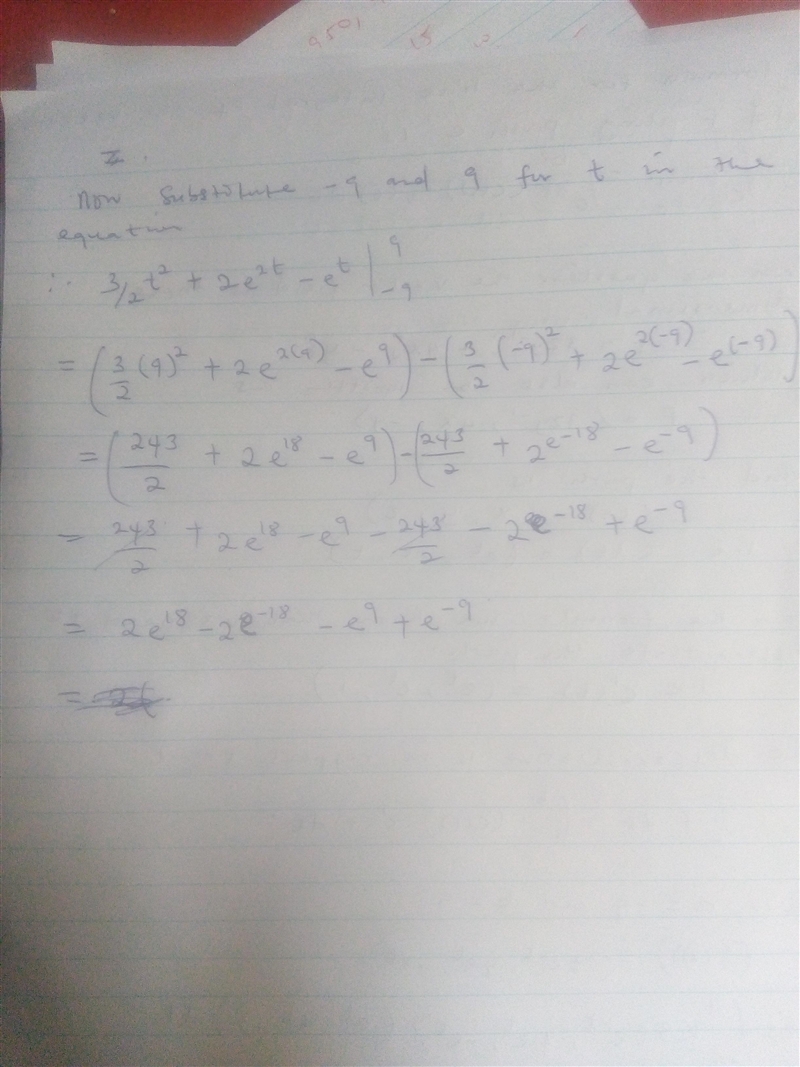 9501
II.
Now substitute -9 and 9 for t in the
equation
∴ 3/2 t² + 2e^{2t} - e^t |_{-9}^{9}
= (3/2 (9)² + 2e^{2(9)} - e^9) - (3/2 (-9)² + 2e^{2(-9)} - e^{(-9)})
= (243/2 + 2e^{18} - e^9) - (243/2 + 2^{e-18} - e^{-9})
= 243/2 + 2e^{18} - e^9 - 243/2 - 2e^{-18} + e^{-9}
= 2e^{18} - 2e^{-18} - e^9 + e^{-9}
=